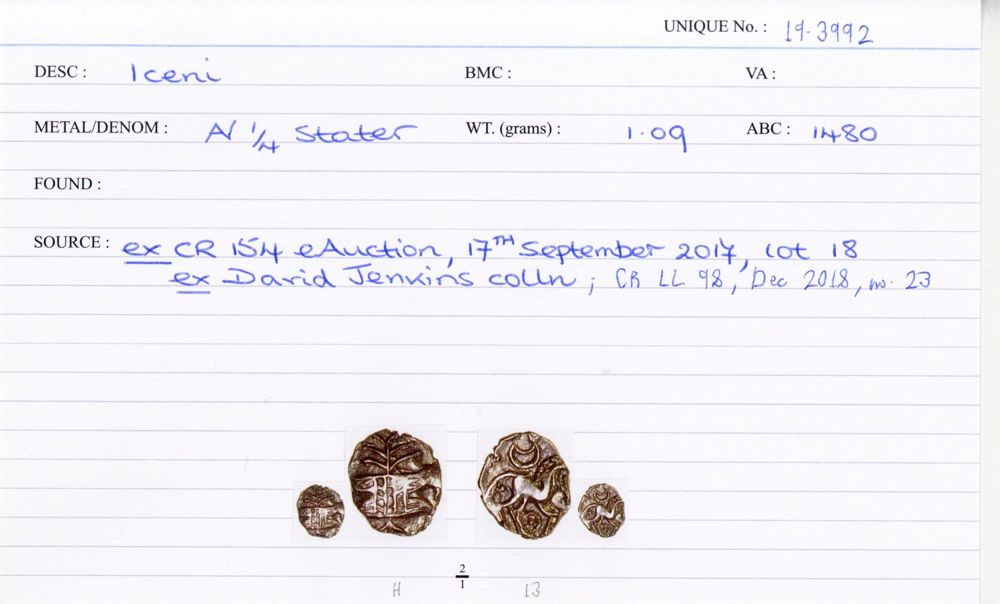 UNIQUE No. : 19-3992
DESC : Iceni BMC : VA :
METAL/DENOM : AV 1/4 Stater WT. (grams) : 1.09 ABC : 1480
FOUND :
SOURCE : ex CR 154 eAuction, 17TH September 2017, lot 18
ex David Jenkins colln ; CR LL 98, Dec 2018, no. 23
2
1
H 13